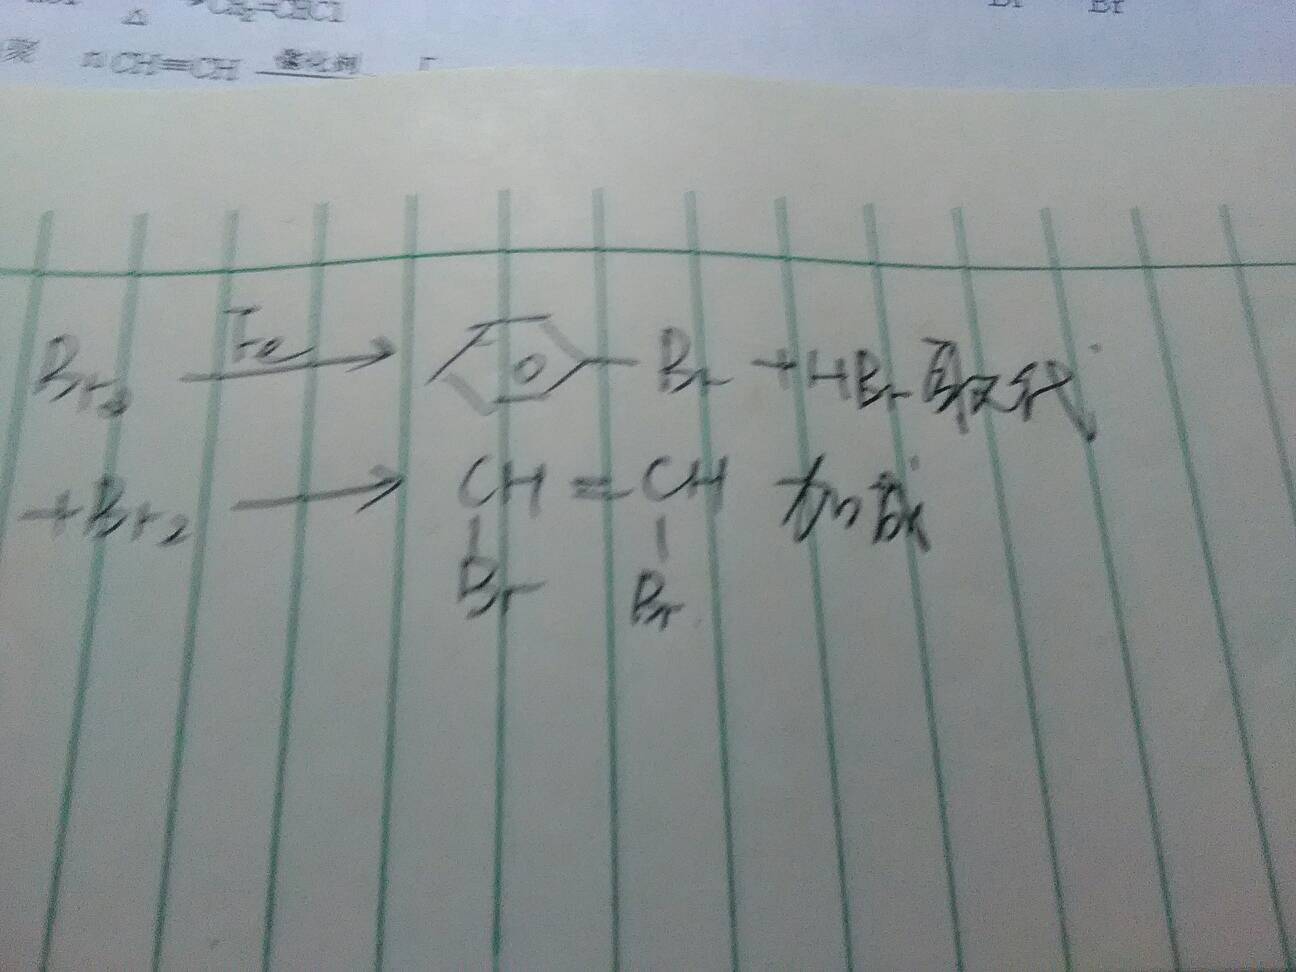 △ CH₂=CHCl
Br Br
聚 nCH≡CH 催化剂
Br₂ Fe → -Br + HBr 取代
+Br₂ → CH = CH 加成
Br Br